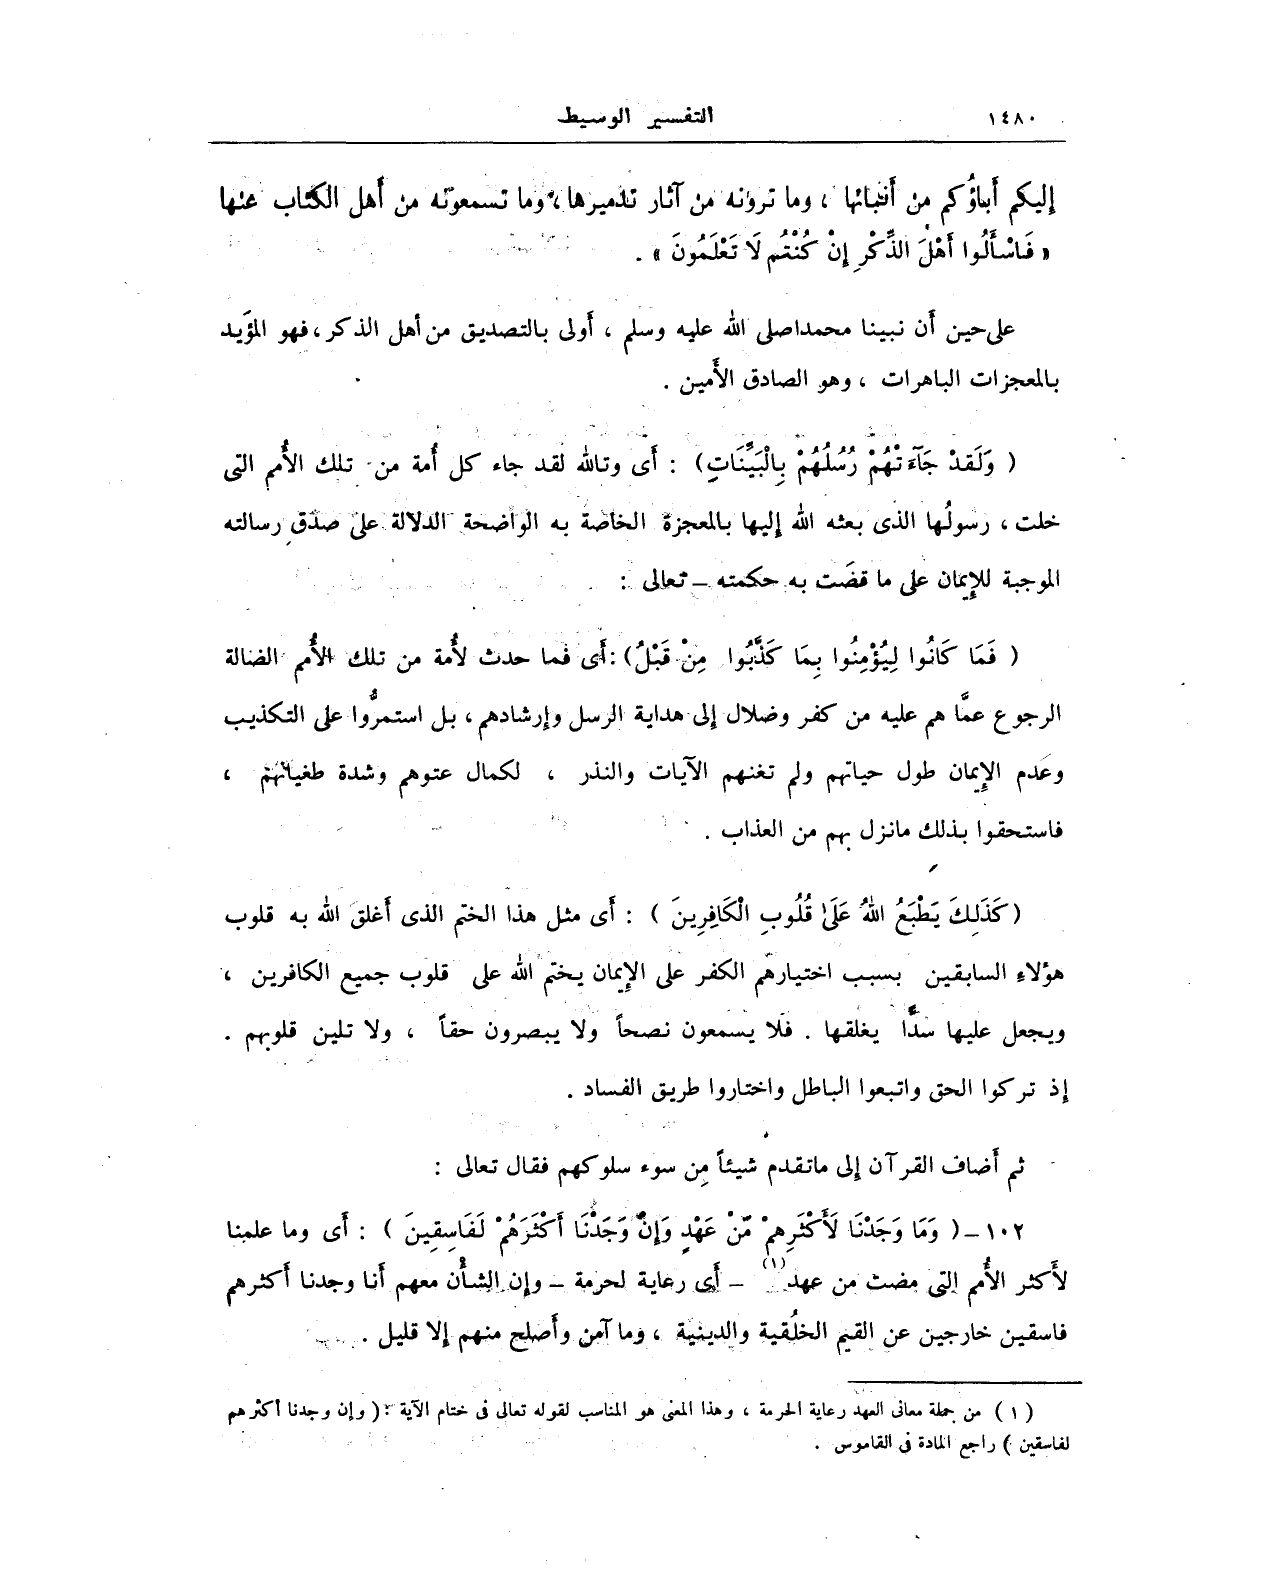 ١٤٨٠ التفسير الوسيط
إليكم أباؤكم من أنبائها ، وما ترونه من آثار تدميرها ، وما تسمعونه من أهل الكتاب عنها
« فَاسْأَلُوا أَهْلَ الذِّكْرِ إِنْ كُنْتُم لَا تَعْلَمُونَ » .
على حين أن نبينا محمدا صلى الله عليه وسلم ، أولى بالتصديق من أهل الذكر ، فهو المؤَيد
بالمعجزات الباهرات ، وهو الصادق الأمين .
( وَلَقدْ جَآءَتْهُمْ رُسُلُهُمْ بِالْبَيِّنَاتِ ) : أى وتالله لقد جاء كل أُمة من تلك الأُمم التى
خلت ، رسولُها الذى بعثه الله إليها بالمعجزة الخاصة به الواضحة الدلالة على صدق رسالته
الموجبة للإيمان على ما قضَت به حكمته ــ تعالى :
( فَمَا كَانُوا لِيُؤْمِنُوا بِمَا كَذَّبُوا مِنْ قَبْلُ ) : أى فما حدث لأُمة من تلك الأُمم الضالة
الرجوع عمَّا هم عليه من كفر وضلال إلى هداية الرسل وإرشادهم ، بل استمرُّوا على التكذيب
وعدم الإيمان طول حياتهم ولم تغنهم الآيات والنذر ، لكمال عتوهم وشدة طغيانهم ،
فاستحقوا بذلك مانزل بهم من العذاب .
( كَذَلِكَ يَطْبَعُ اللهُ عَلَىٰ قُلُوبِ الْكَافِرِينَ ) : أى مثل هذا الختم الذى أغلق الله به قلوب
هؤلاء السابقين بسبب اختيارهم الكفر على الإيمان يختم الله على قلوب جميع الكافرين ،
ويجعل عليها سدًّا يغلقها . فلا يسمعون نصحاً ولا يبصرون حقاً ، ولا تلين قلوبهم .
إذ تركوا الحق واتبعوا الباطل واختاروا طريق الفساد .
ثم أضاف القرآن إلى ماتقدم شيئاً من سوء سلوكهم فقال تعالى :
١٠٢ ــ ( وَمَا وَجَدْنَا لَأَكْثَرِهِمْ مِّنْ عَهْدٍ وَإِنْ وَجَدْنَا أَكْثَرَهُمْ لَفَاسِقِينَ ) : أى وما علمنا
لأكثر الأُمم التى مضت من عهد (١) ــ أى رعاية لحرمة ــ وإن الشأن معهم أنا وجدنا أكثرهم
فاسقين خارجين عن القيم الخلُقية والدينية ، وما آمن وأصلح منهم إلا قليل .
( ١ ) من جملة معانى العهد رعاية الحرمة ، وهذا المعنى هو المناسب لقوله تعالى فى ختام الآية : ( وإن وجدنا أكثرهم
لفاسقين ) راجع المادة فى القاموس .